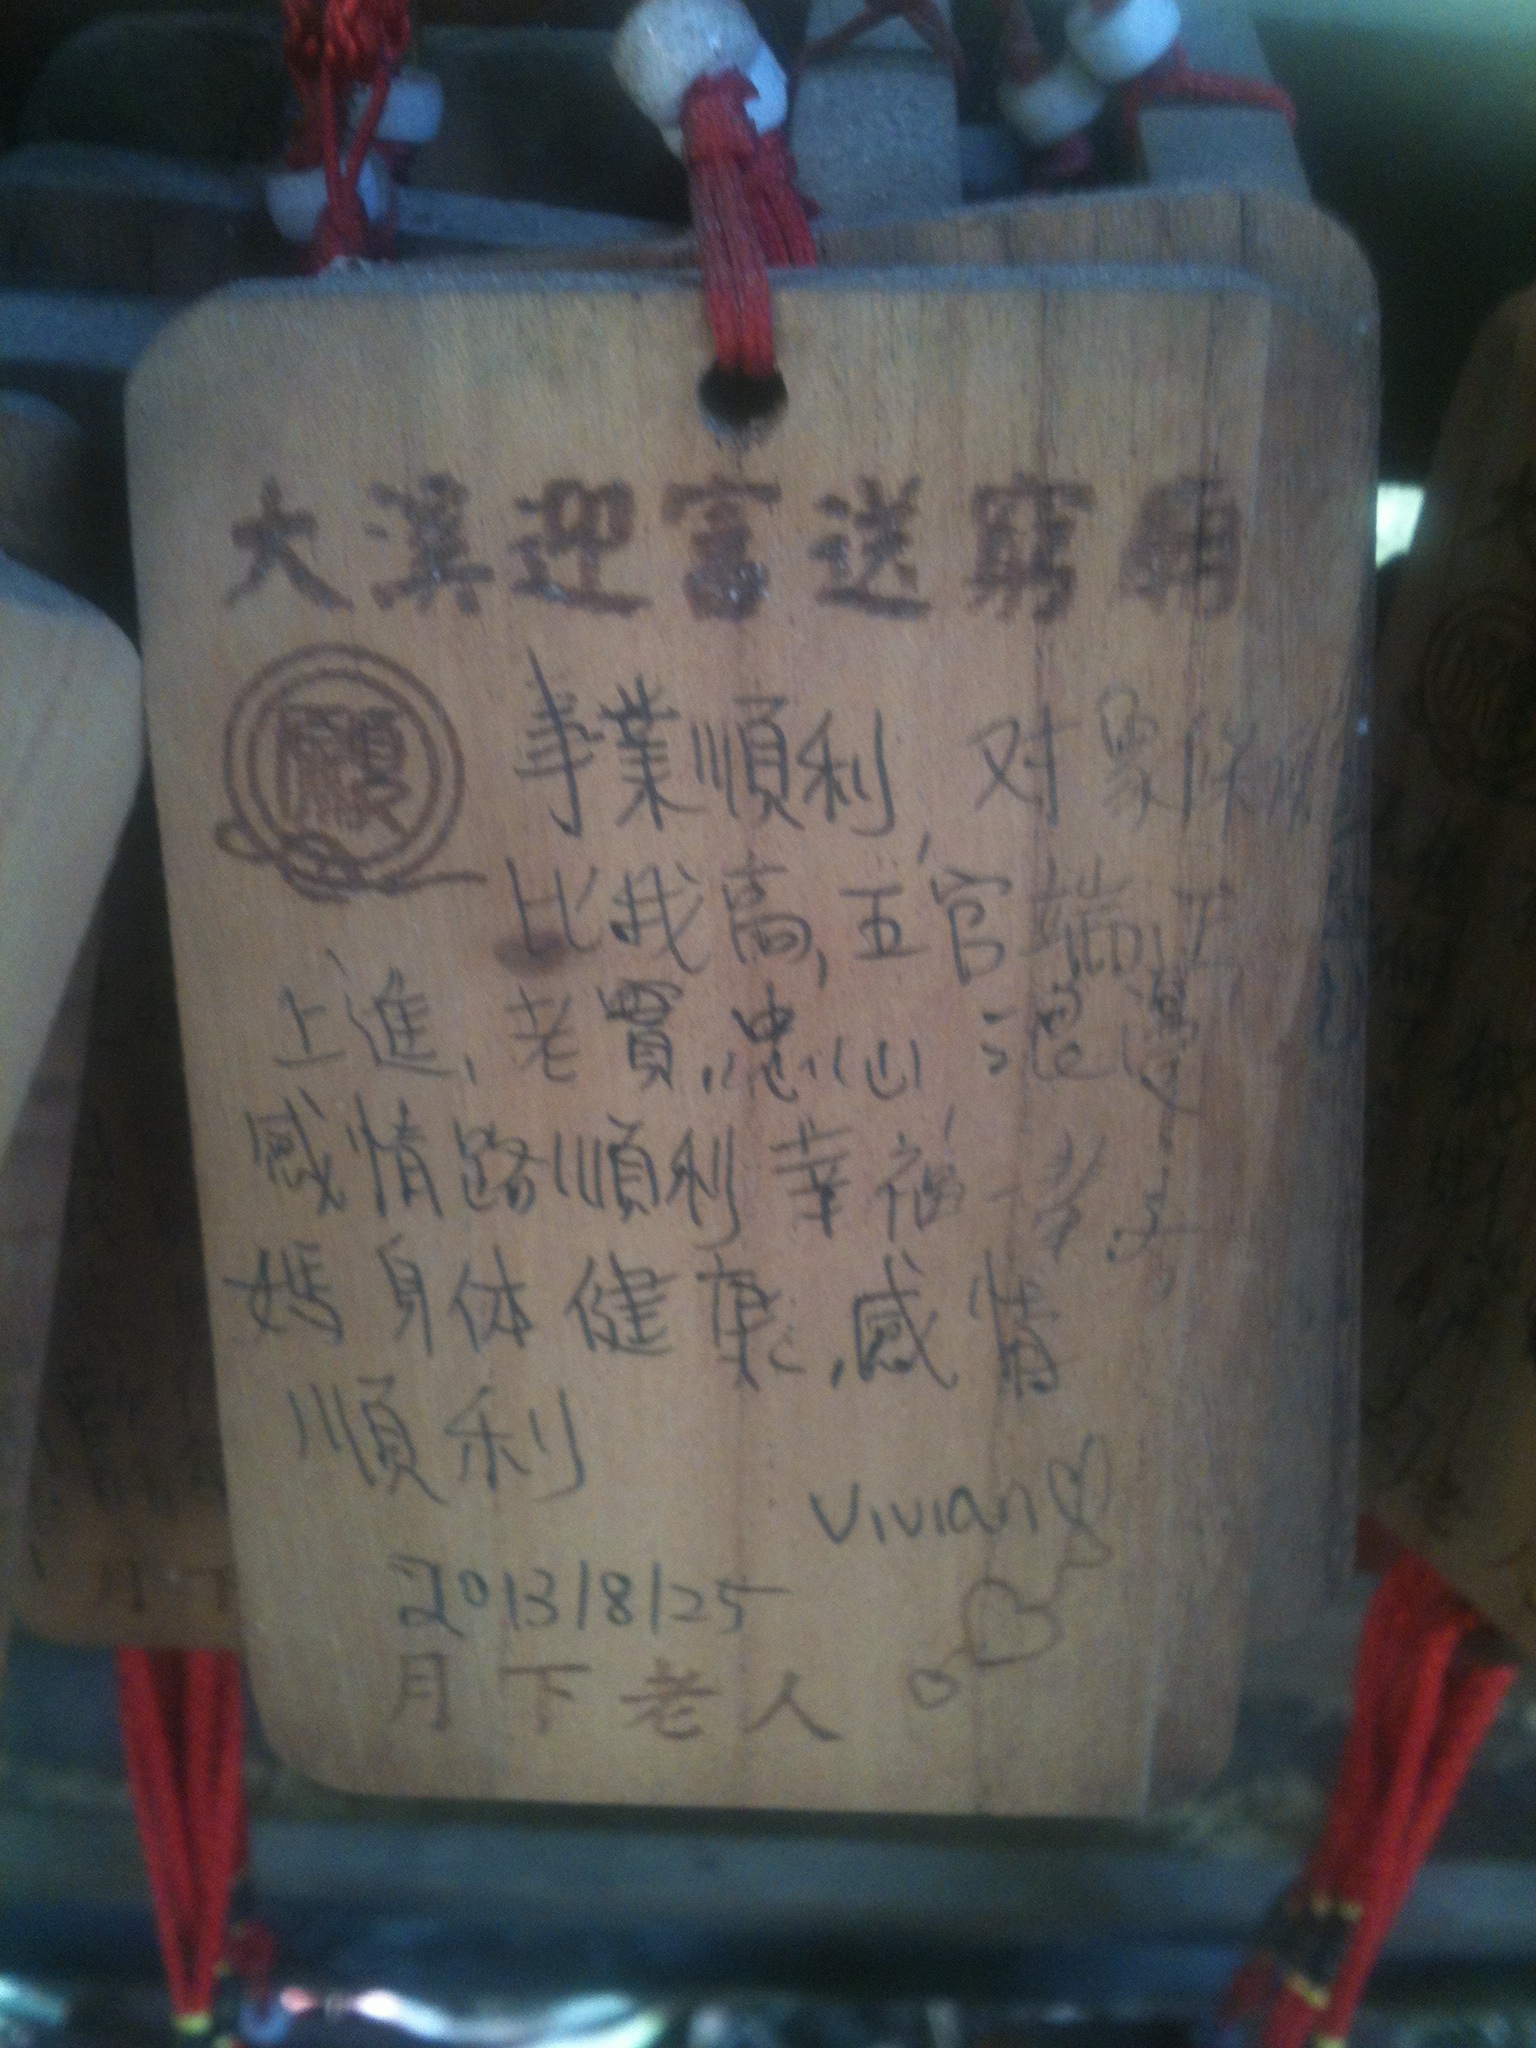 大溪迎富送窮廟
願
事業順利, 对象
比我高, 五官端正
上進, 老實, 忠心 浪漫
感情路順利幸福一輩子
媽身体健康, 感情
順利
Vivian
2013/8/25
月下老人